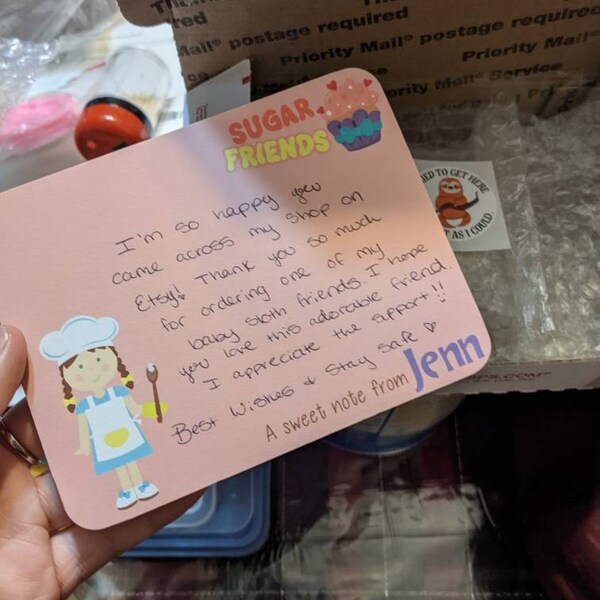 ired
Mail® postage required
Priority Mail® postage required
Priority Mail®
Priority Mail® Service
SUGAR
FRIENDS
I'm so happy you
came across my shop on
Etsy! Thank you so much
for ordering one of my
baby sloth friends. I hope
you love this adorable friend.
I appreciate the support!!
Best Wishes & Stay safe ♡
A sweet note from Jenn
ED TO GET HERE
T AS I COULD.